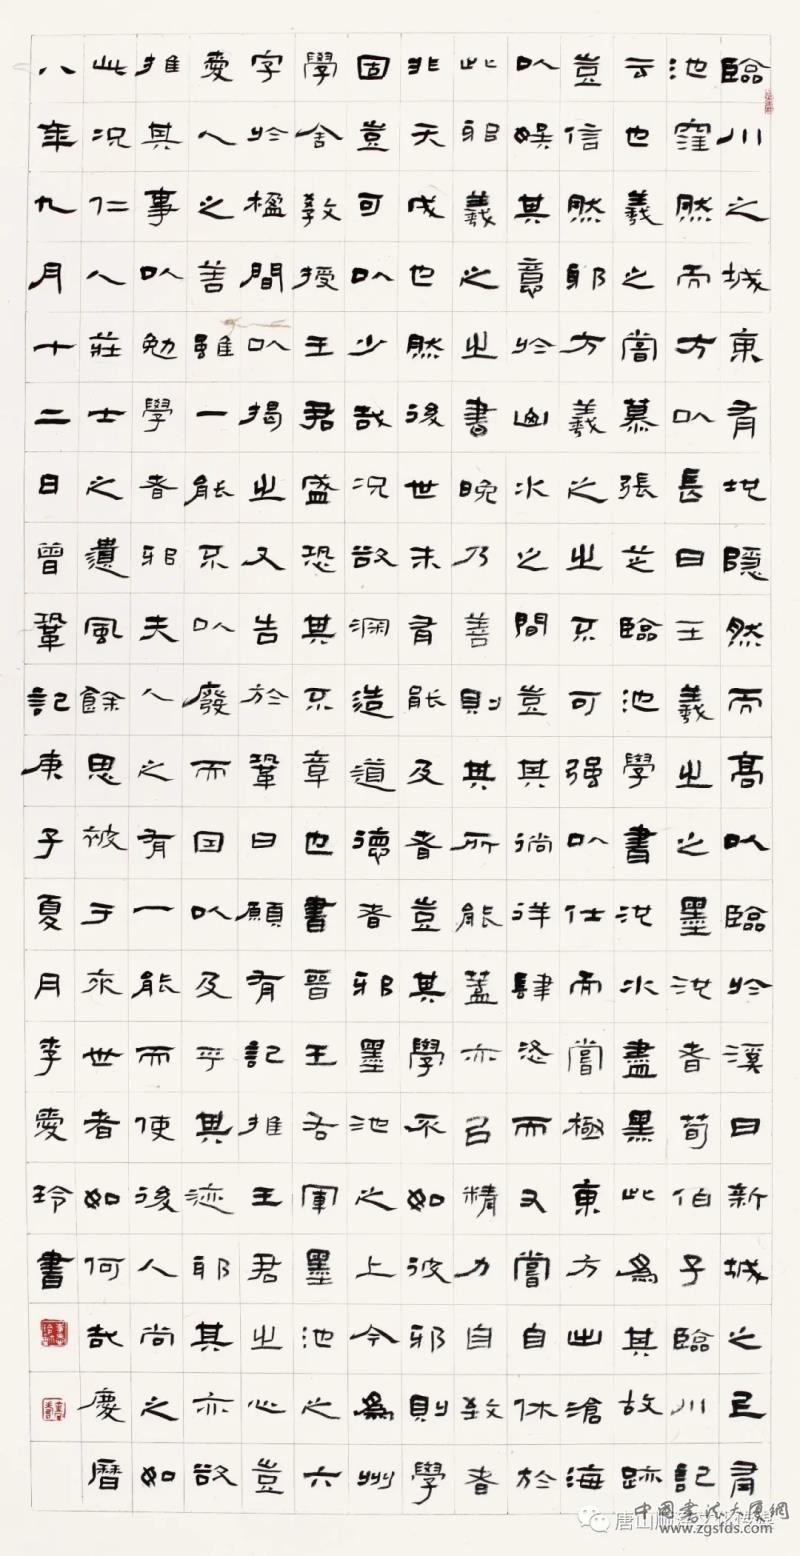 臨川之城東有地隱然而高以臨於溪曰新城之上有
池窪然而方以長曰王羲之之墨池者荀伯子臨川記
云也羲之嘗慕張芝臨池學書池水盡黑此為其故跡
豈信然耶方羲之之不可强以仕而嘗極東方出滄海
以娛其意於山水之間豈其徜徉肆恣而又嘗自休於
此邪羲之之書晚乃善則其所能蓋亦以精力自致者
非天成也然後世未有能及者豈其學不如彼邪則學
固豈可以少哉況欲深造道德者邪墨池之上今為州
學舍教授王君盛恐其不章也書晉王右軍墨池之六
字於楹間以揭之又告於鞏曰願有記推王君之心豈
愛人之善雖一能不以廢而因以及乎其迹耶其亦欲
推其事以勉學者邪夫人之有一能而使後人尚之如
此況仁人莊士之遺風餘思被于來世者如何哉慶曆
八年九月十二日曾鞏記庚子夏月李愛玲書
唐山
www.zgsfds.com